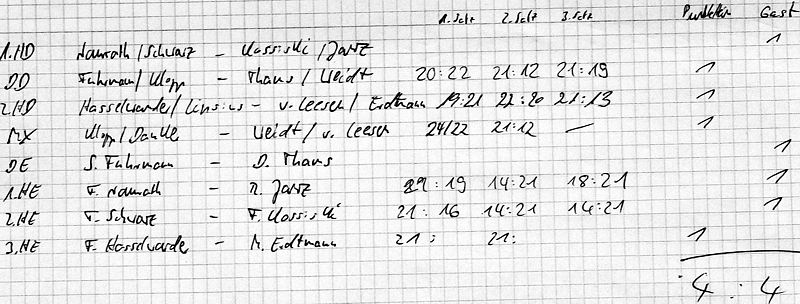 1. Satz 2. Satz 3. Satz Gast
1.HD Namrath / Schwarz - Kassiski / Jartz 1
DD Fuhrmann / Klopp - Thaus / Weidt 20:22 21:12 21:19 1
2.HD / - v. Leesen / Erdtmann 19:21 22:20 21:13 1
MX Klopp / - Weidt / v. Leesen 24/22 21:12 — 1
DE S. Fuhrmann - D. Thaus 1
1.HE F. Namrath - R. Jartz :19 14:21 18:21 1
2.HE T. Schwarz - F. Kassiski 21:16 14:21 14:21 1
3.HE F. - M. Erdtmann 21: 21: 1
4 : 4